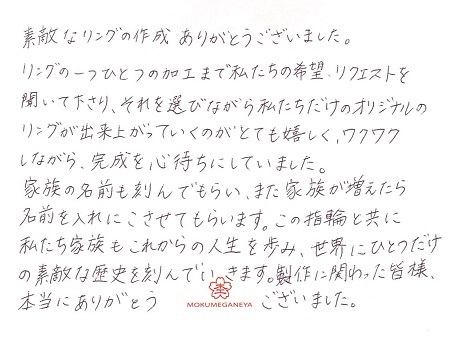 素敵なリングの作成 ありがとうございました。
リングの一つひとつの加工まで私たちの希望、リクエストを
聞いて下さり、それを選びながら私たちだけのオリジナルの
リングが出来上がっていくのがとても嬉しく、ワクワク
しながら、完成を心待ちにしていました。
家族の名前も刻んでもらい、また家族が増えたら
名前を入れにこさせてもらいます。この指輪と共に
私たち家族もこれからの人生を歩み、世界にひとつだけ
の素敵な歴史を刻んでいきます。製作に関わった皆様、
本当にありがとう ございました。
MOKUMEGANEYA